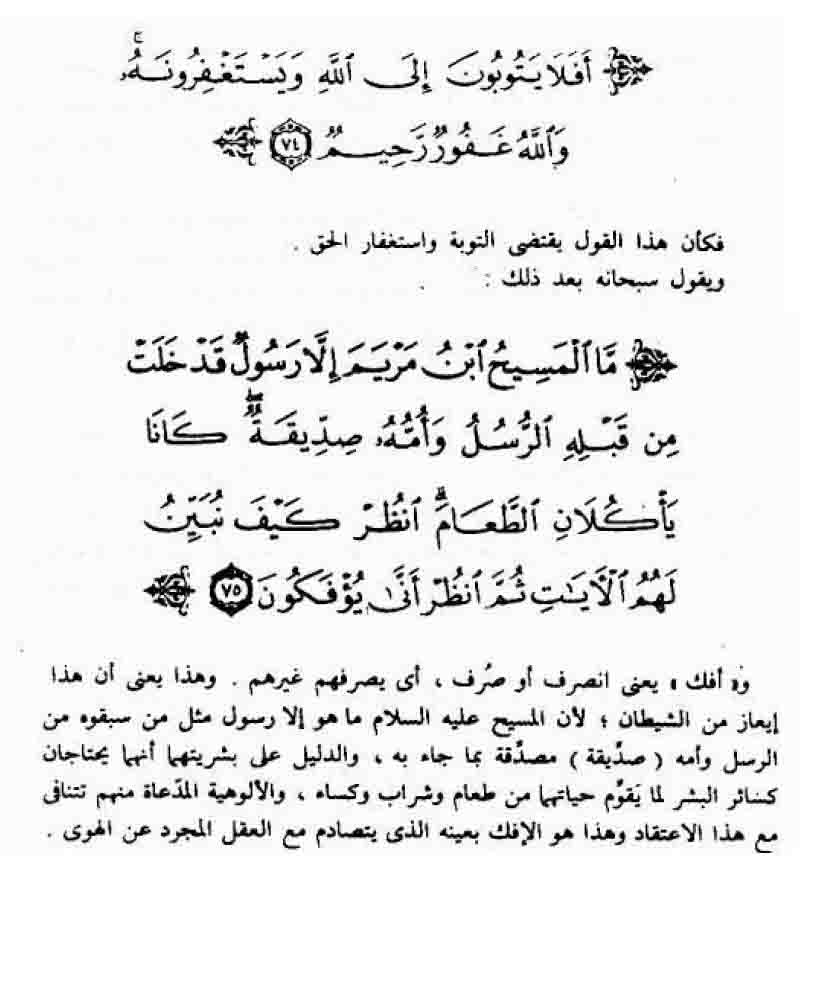 أَفَلَا يَتُوبُونَ إِلَى ٱللَّهِ وَيَسْتَغْفِرُونَهُۥ ۚ
وَٱللَّهُ غَفُورٌ رَّحِيمٌ ٧٤
فكأن هذا القول يقتضى التوبة واستغفار الحق .
ويقول سبحانه بعد ذلك :
مَّا ٱلْمَسِيحُ ٱبْنُ مَرْيَمَ إِلَّا رَسُولٌ قَدْ خَلَتْ
مِن قَبْلِهِ ٱلرُّسُلُ وَأُمُّهُۥ صِدِّيقَةٌ ۖ كَانَا
يَأْكُلَانِ ٱلطَّعَامَ ۗ ٱنظُرْ كَيْفَ نُبَيِّنُ
لَهُمُ ٱلْآيَٰتِ ثُمَّ ٱنظُرْ أَنَّىٰ يُؤْفَكُونَ ٧٥
و« أفك » يعنى انصرف أو صُرف ، أى يصرفهم غيرهم . وهذا يعنى أن هذا
إيعاز من الشيطان ؛ لأن المسيح عليه السلام ما هو إلا رسول مثل من سبقوه من
الرسل وأمه ( صدِّيقة ) مصدِّقة بما جاء به ، والدليل على بشريتهما أنهما يحتاجان
كسائر البشر لما يَقوِّم حياتهما من طعام وشراب وكساء ، والألوهية المدّعاة منهم تتنافى
مع هذا الاعتقاد وهذا هو الإفك بعينه الذى يتصادم مع العقل المجرد عن الهوى .